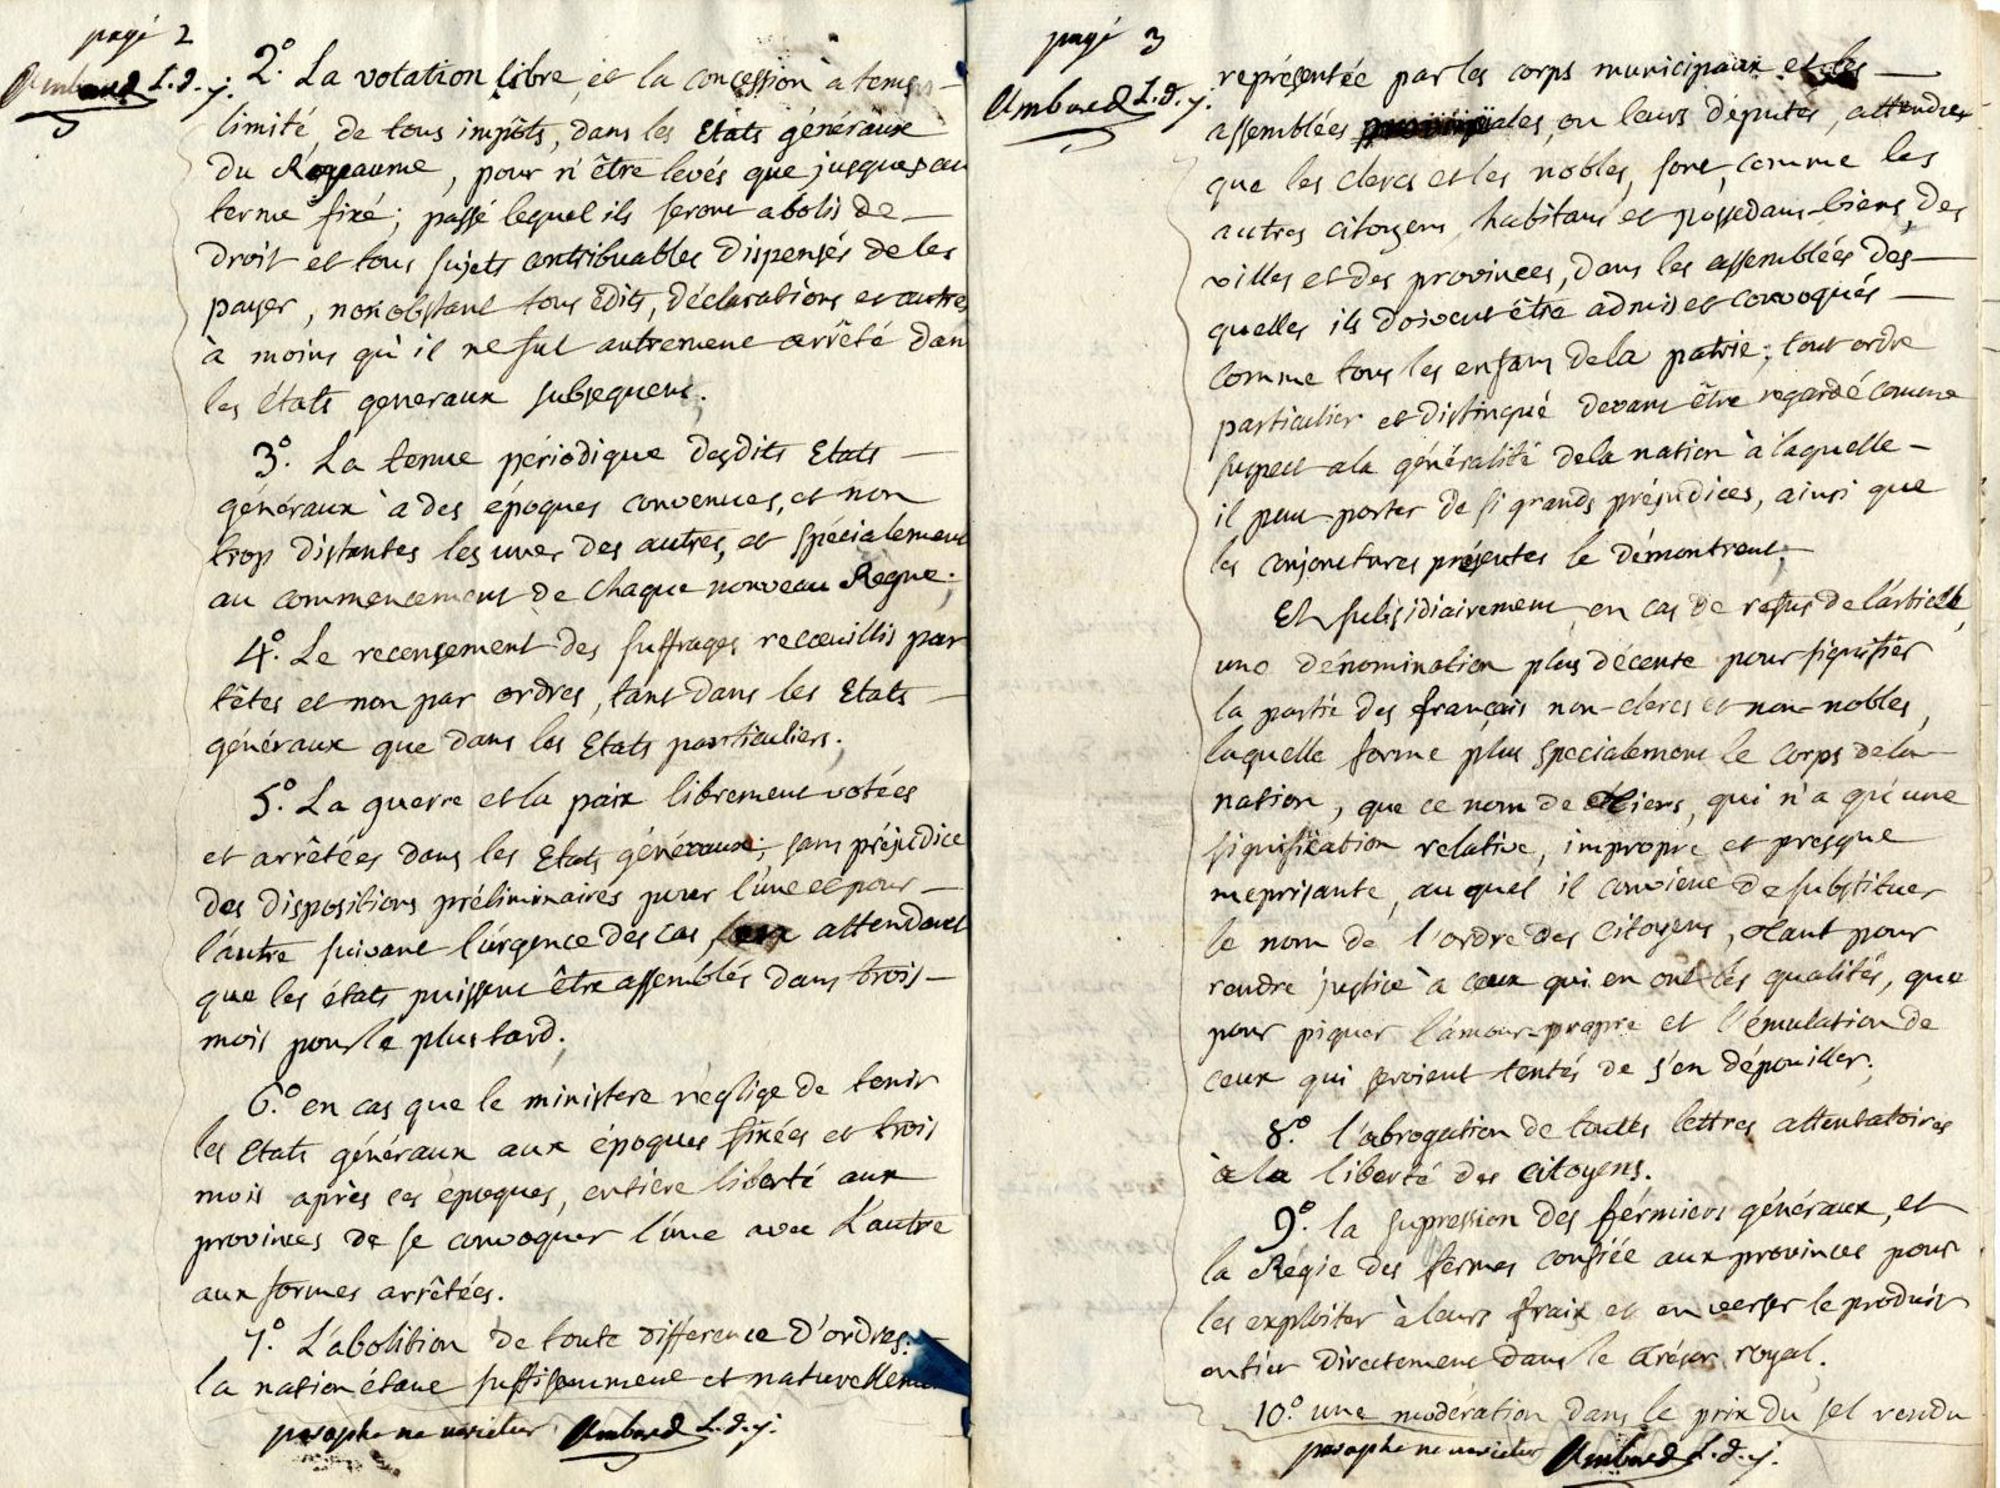 pagé 2
Ambard L. d. j.
2°. La votation libre, et la concession à tems
limité, de tous impôts, dans les Etats généraux
du Royaume, pour n'être levés que jusques au
terme fixé; passé lequel ils seront abolis de
droit et tous sujets contribuables dispensés de les
payer, nonobstant tous édits, déclarations et autres
à moins qu'il ne fut autrement arrêté dans
les états generaux subsequens.
3°. La tenue périodique desdits Etats
généraux à des époques convenues, et non
trop distantes les unes des autres, et spécialement
au commencement de chaque nouveau Regne;
4°. Le recensement des suffrages recœuillis par
têtes et non par ordres, tant dans les Etats
généraux que dans les Etats particuliers;
5°. La guerre et la paix librement votées
et arrêtées dans les Etats généraux; sans préjudice
des dispositions préliminaires pour l'une et pour
l'autre suivant l'urgence des cas, attendant
que les états puissent être assemblés dans trois
mois pour le plus tard;
6.° en cas que le ministere néglige de tenir
les Etats généraux aux époques fixées et trois
mois après ces époques, entière liberté aux
provinces de se convoquer l'une avec l'autre
aux formes arrêtées.
7.° L'abolition de toute difference d'ordres;
la nation étant suffisamment et naturellement
paraphé ne varietur Ambard L. d. j.
pagé 3
Ambard L. d. j.
représentée par les corps municipaux et les
assemblées ou leurs députés, attendu
que les clercs et les nobles, sont, comme les
autres citoyens, habitans et possedans-biens, des
villes et des provinces, dans les assemblées des
quelles ils doivent être admis et convoqués
comme tous les enfans de la patrie; tout ordre
particulier et distingué devant être regardé comme
suspect a la généralité de la nation à laquelle
il peut porter de si grands préjudices, ainsi que
les conjonctures présentes le démontrent;
Et subsidiairement en cas de refus de l'article,
une dénomination plus décente pour signifier
la partie des français non-clercs et non-nobles,
laquelle forme plus specialement le corps de la
nation, que ce nom de tiers, qui n'a qu'une
signification relative, impropre et presque
meprisante, au quel il convient de substituer
le nom de l'ordre des Citoyens, tant pour
rendre justice à ceux qui en ont les qualités, que
pour piquer l'amour-propre et l'émulation de
ceux qui seroient tentés de s'en dépouiller;
8.° l'abrogation de toutes lettres attentatoires
à la liberté des Citoyens.
9°. la supression des férmiers généraux, et
la Régie des fermes confiée aux provinces pour
les exploiter à leurs fraix et en verser le produit
entier directement dans le trésor royal.
10.° une modération dans le prix du sel vendu
paraphé ne varietur Ambard L. d. j.